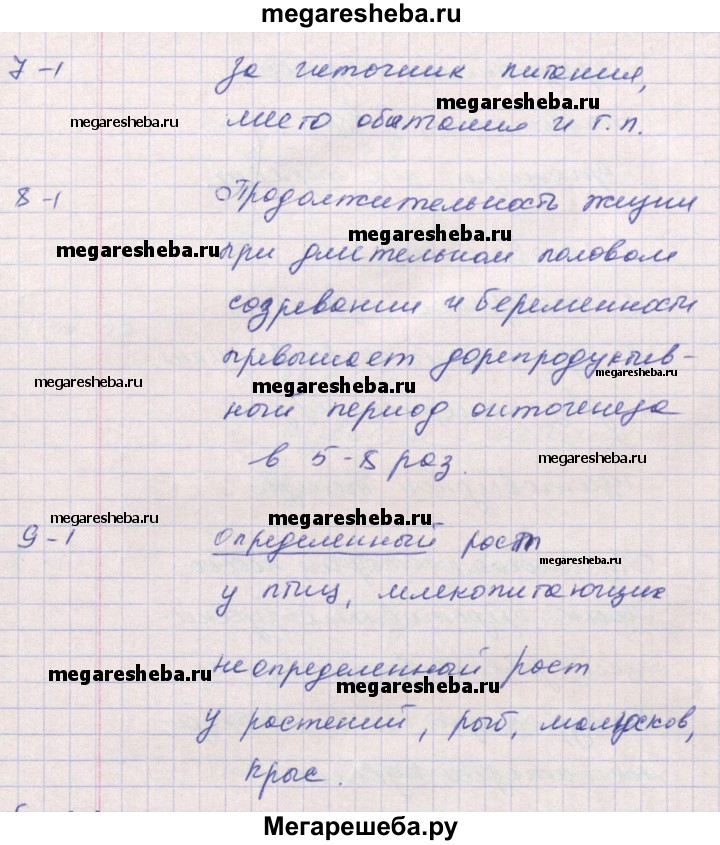 megaresheba.ru
7-1 За источник питания,
megaresheba.ru
megaresheba.ru место обитания и т.п.
8-1 Продолжительность жизни
megaresheba.ru
megaresheba.ru при длительном половом
созревании и беременности
превышает дорепродуктив-
megaresheba.ru megaresheba.ru megaresheba.ru
ный период онтогенеза
в 5-8 раз. megaresheba.ru
megaresheba.ru megaresheba.ru
9-1 Определенный рост
megaresheba.ru
у птиц, млекопитающих
megaresheba.ru неопределенный рост
megaresheba.ru
у растений, рыб, моллюсков,
крыс.
Мегарешеба.ру